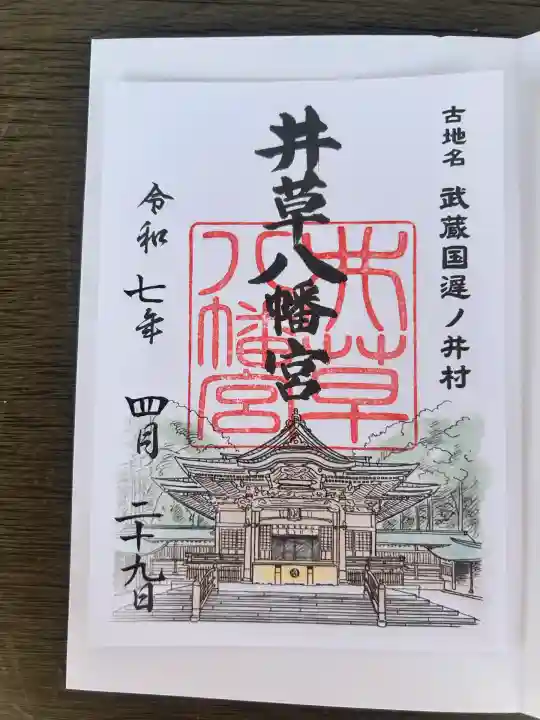 古地名 武蔵国遅ノ井村
井草八幡宮
井草
八幡宮
令和 七年 四月 二十九日